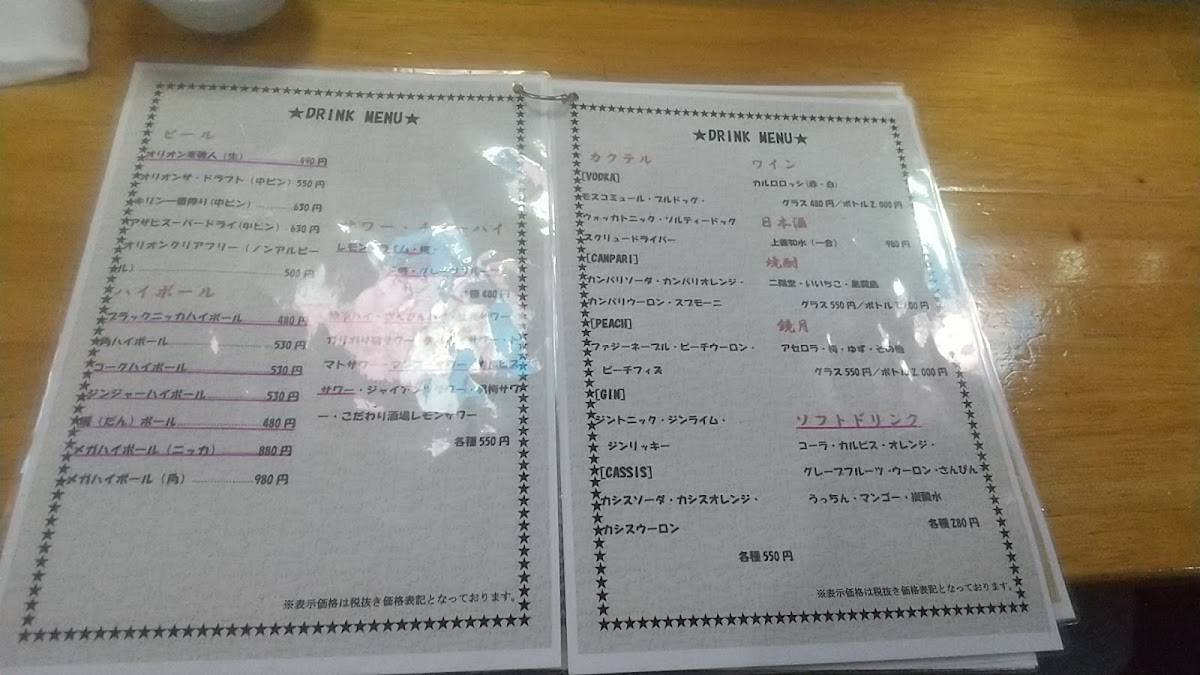 ★DRINK MENU★
ビール
オリオン
(生) 490円
オリオンザ・ドラフト(中ビン) 550円
キリン一番搾り(中ビン) 630円
アサヒスーパードライ(中ビン) 630円
オリオンクリアフリー(ノンアルビー
ル) 500円
ハイボール
ブラックニッカハイボール 480円
角ハイボール 530円
コークハイボール 530円
ジンジャーハイボール 530円
(だん)ボール 480円
メガハイボール(ニッカ) 880円
メガハイボール(角) 980円
サワー・チューハイ
レモン・ライム・
グレープフルーツ
480円
サワー
マトサワー・マンゴーサワー・カルピス
サワー・ジャイアンサワー・
梅サワ
ー・こだわり酒場レモンサワー
各種550円
※表示価格は税抜き価格表記となっております。
★DRINK MENU★
カクテル
[VODKA]
モスコミュール・ブルドッグ・
ウォッカトニック・ソルティードッグ
スクリュードライバー
[CANPARI]
カンパリソーダ・カンパリオレンジ・
カンパリウーロン・スプモーニ
[PEACH]
ファジーネーブル・ピーチウーロン・
ピーチフィズ
[GIN]
ジントニック・ジンライム・
ジンリッキー
[CASSIS]
カシスソーダ・カシスオレンジ・
カシスウーロン
各種550円
ワイン
カルロロッシ(赤・白)
グラス480円/ボトル2,000円
日本酒
上善如水(一合) 980円
焼酎
二階堂・いいちこ・
グラス550円/ボトル
円
鏡月
アセロラ・梅・ゆず・その他
グラス550円/ボトル2,000円
ソフトドリンク
コーラ・カルピス・オレンジ・
グレープフルーツ・ウーロン・さんぴん
うっちん・マンゴー・炭酸水
各種280円
※表示価格は税抜き価格表記となっております。